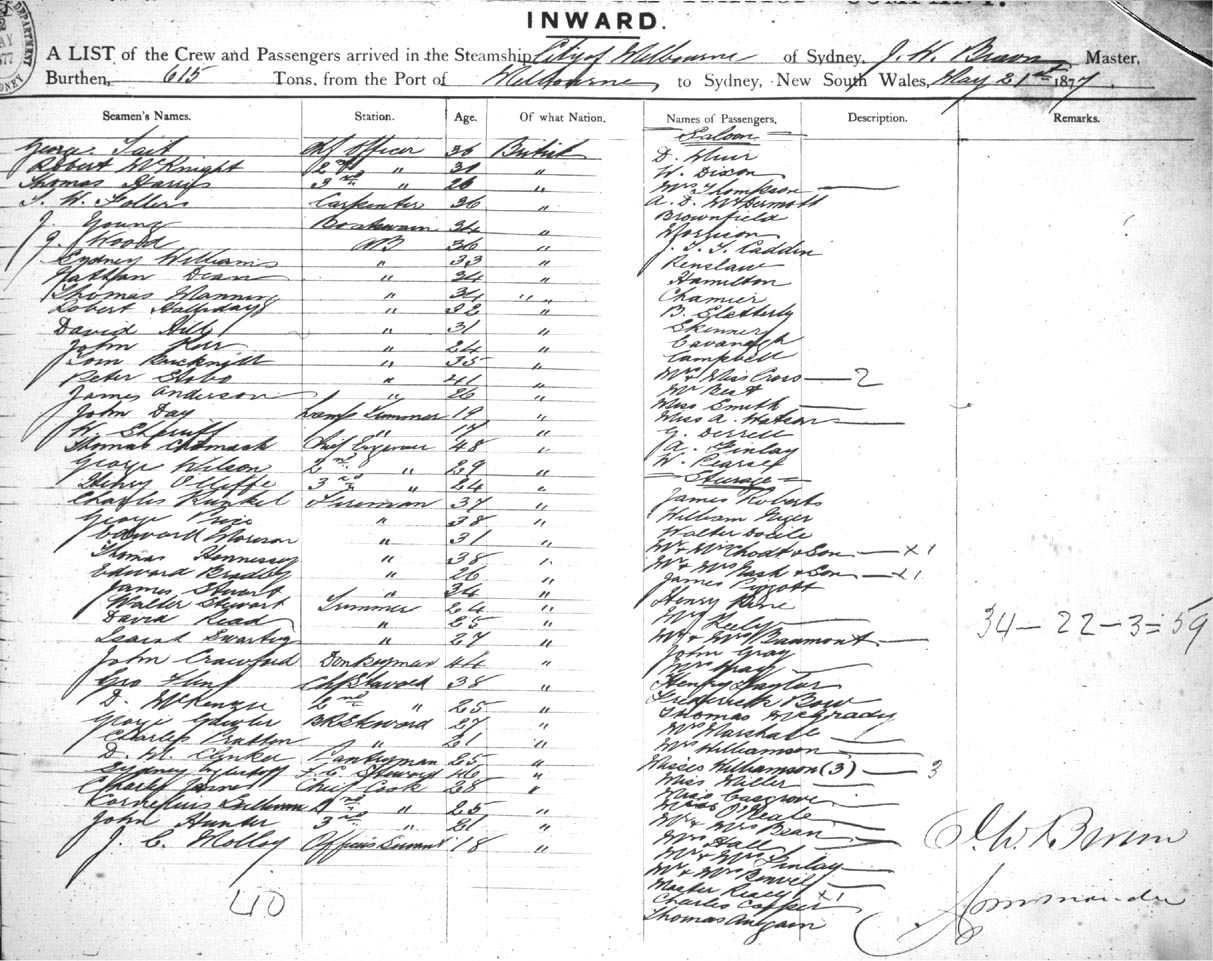 INWARD.
A LIST of the Crew and Passengers arrived in the Steamship City of Melbourne of Sydney, J. W. Brown Master,
Burthen, 615 Tons, from the Port of Melbourne to Sydney, New South Wales, May 21st 1877.
Seamen's Names. Station. Age. Of what Nation. Names of Passengers, Description. Remarks.
George Tait Ch Officer 36 British
Robert McKnight 2nd " 31 "
Thomas 3rd " 26 "
Carpenter 36 "
J. Young Boatswain 34 "
J. Wood AB 36 "
Sydney Williams " 33 "
Nathan Dean " 34 "
Thomas Manning " 34 " "
Robert Halliday " 32 "
David Hill " 31 "
John Kerr " 24 "
Tom Bucknill " 35 "
Peter Stobo " 41 "
James Anderson " 26 "
John Day Lamp Trimmer 19 "
W. " 17 "
Thomas Chief Engineer 48 "
George Wilson 2nd " 29 "
Henry 3rd " 24 "
Charles Kunkel Fireman 37 "
George Price " 38 "
Edward " 31 "
Thomas Hennessy " 38 "
Edward Bradley " 26 "
James Stuart " 34 "
Walter Stewart Trimmer 24 "
David Read " 25 "
" 27 "
John Crawford Donkeyman 44 "
Geo Flint Chf Steward 38 "
D. McKenzie 2nd " 25 "
George Bk Steward 27 "
Charles Bratton " 21 "
D. M. Pantryman 25 "
Sydney Steward 46 "
Charles Chief Cook 28 "
Cornelius 2nd " 25 "
John Hunter 3rd " 21 "
J. C. Molloy Officers Servant 18 "
40
Saloon
D. Muir
W. Dixon
Mrs Thompson
A. D. McDermott
Brownfield
Morrison
J. T. T. Caddin
Renslaw
Hamilton
Chamier
B. Slatterly
Skinner
Cavanagh
Campbell
Mr & Miss Cross — 2
Mr Best
Miss Smith
Miss A. Watson
G. Direell
A. Finlay
W. Pearse
Steerage
James Roberts
William
Walter
Mr & Mrs Choat & Son — X 1
Mr & Mrs Nash & Son — X 1
James Pigott
Henry
Mrs Keely
Mr & Mrs Beaumont
John Gray
Mrs Gray
Henry Taylor
Frederick Bow
Thomas McGrady
Mrs Marshall
Mrs Williamson
Misses Williamson (3) — 3
Miss Miller
Miss Cosgrove
Miss O'Neale
Mr & Mrs Bean
Mrs Hall
Mr & Mrs Finlay
Mr & Mrs
Master X 1
Charles Cooper
Thomas
34 – 22 – 3 = 59
J. W. Brown
Commander